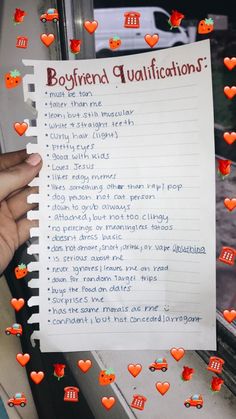 Boyfriend Qualifications:
• must be tan
• taller than me
• lean, but still muscular
• white + straight teeth
• curly hair (light)
• pretty eyes
• good with kids
• Loves Jesus
• likes edgy memes
• likes something other than rap/pop
• dog person not cat person
• down to grub always
• attached, but not too clingy
• no piercings or meaningless tatoos
• doesnt dress basic
• does not smoke, snort, drink, or vape
• is serious about me
• never ignores/leaves me on read
• down for random Target trips
• buys the food on dates
• surprises me
• has the same morals as me
• confident, but not conceded/arrogant